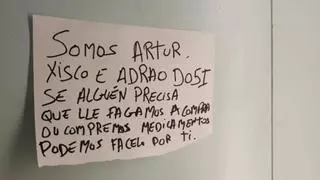 SOMOS ARTUR,
XISCO E ADRAO DO 5I
SE ALGUÉN PRECISA
QUE LLE FAGAMOS A COMPRA
OU COMPREMOS MEDICAMENTOS
PODEMOS FACELO POR TI.